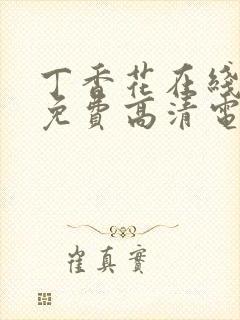 丁香花在綫
免費高清電
崔真實